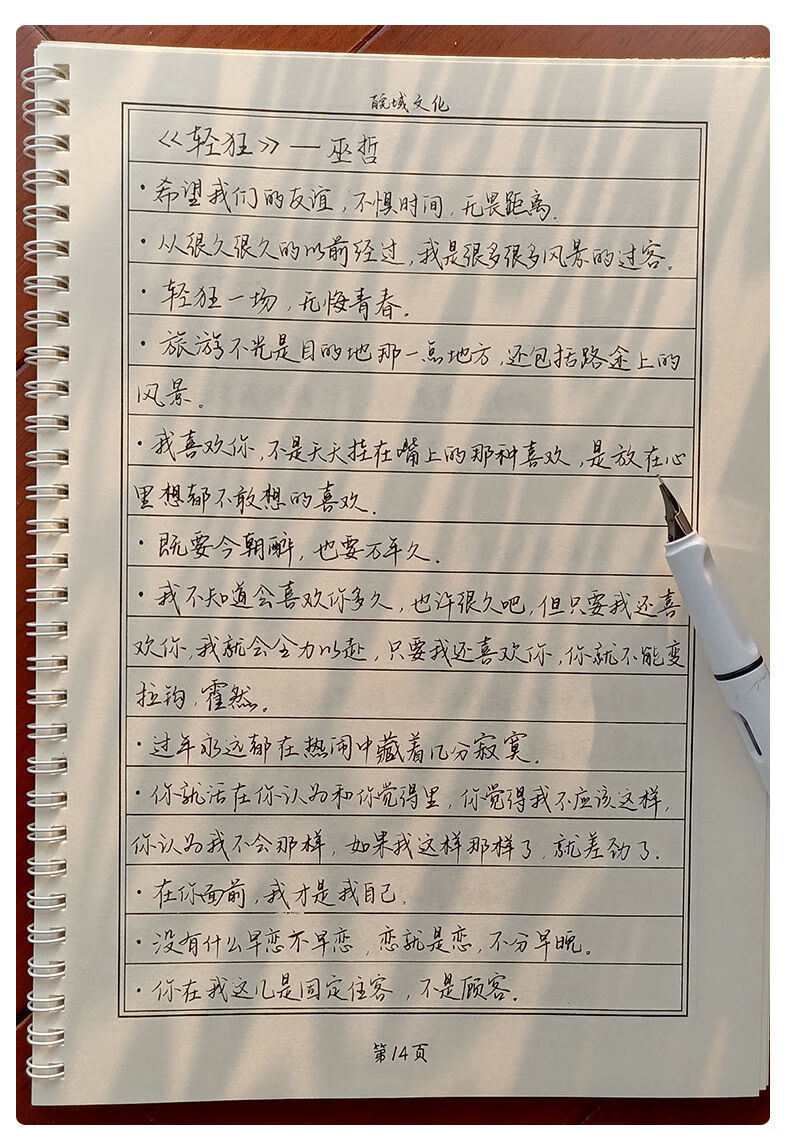 皖域文化
《轻狂》—巫哲
·希望我们的友谊,不惧时间,无畏距离.
·从很久很久的以前经过,我是很多很多风景的过客。
·轻狂一场,无悔青春.
·旅游不光是目的地那一点地方,还包括路途上的
风景。
·我喜欢你,不是天天挂在嘴上的那种喜欢,是放在心
里想都不敢想的喜欢.
·既要今朝醉,也要万年久.
·我不知道会喜欢你多久,也许很久吧,但只要我还喜
欢你,我就会全力以赴,只要我还喜欢你,你就不能变
拉钩,霍然。
·过年永远都在热闹中藏着几分寂寞.
·你就活在你认为和你觉得里,你觉得我不应该这样,
你认为我不会那样,如果我这样那样了,就差劲了.
·在你面前,我才是我自己.
·没有什么早恋不早恋,恋就是恋,不分早晚。
·你在我这儿是固定住客,不是顾客.
第14页